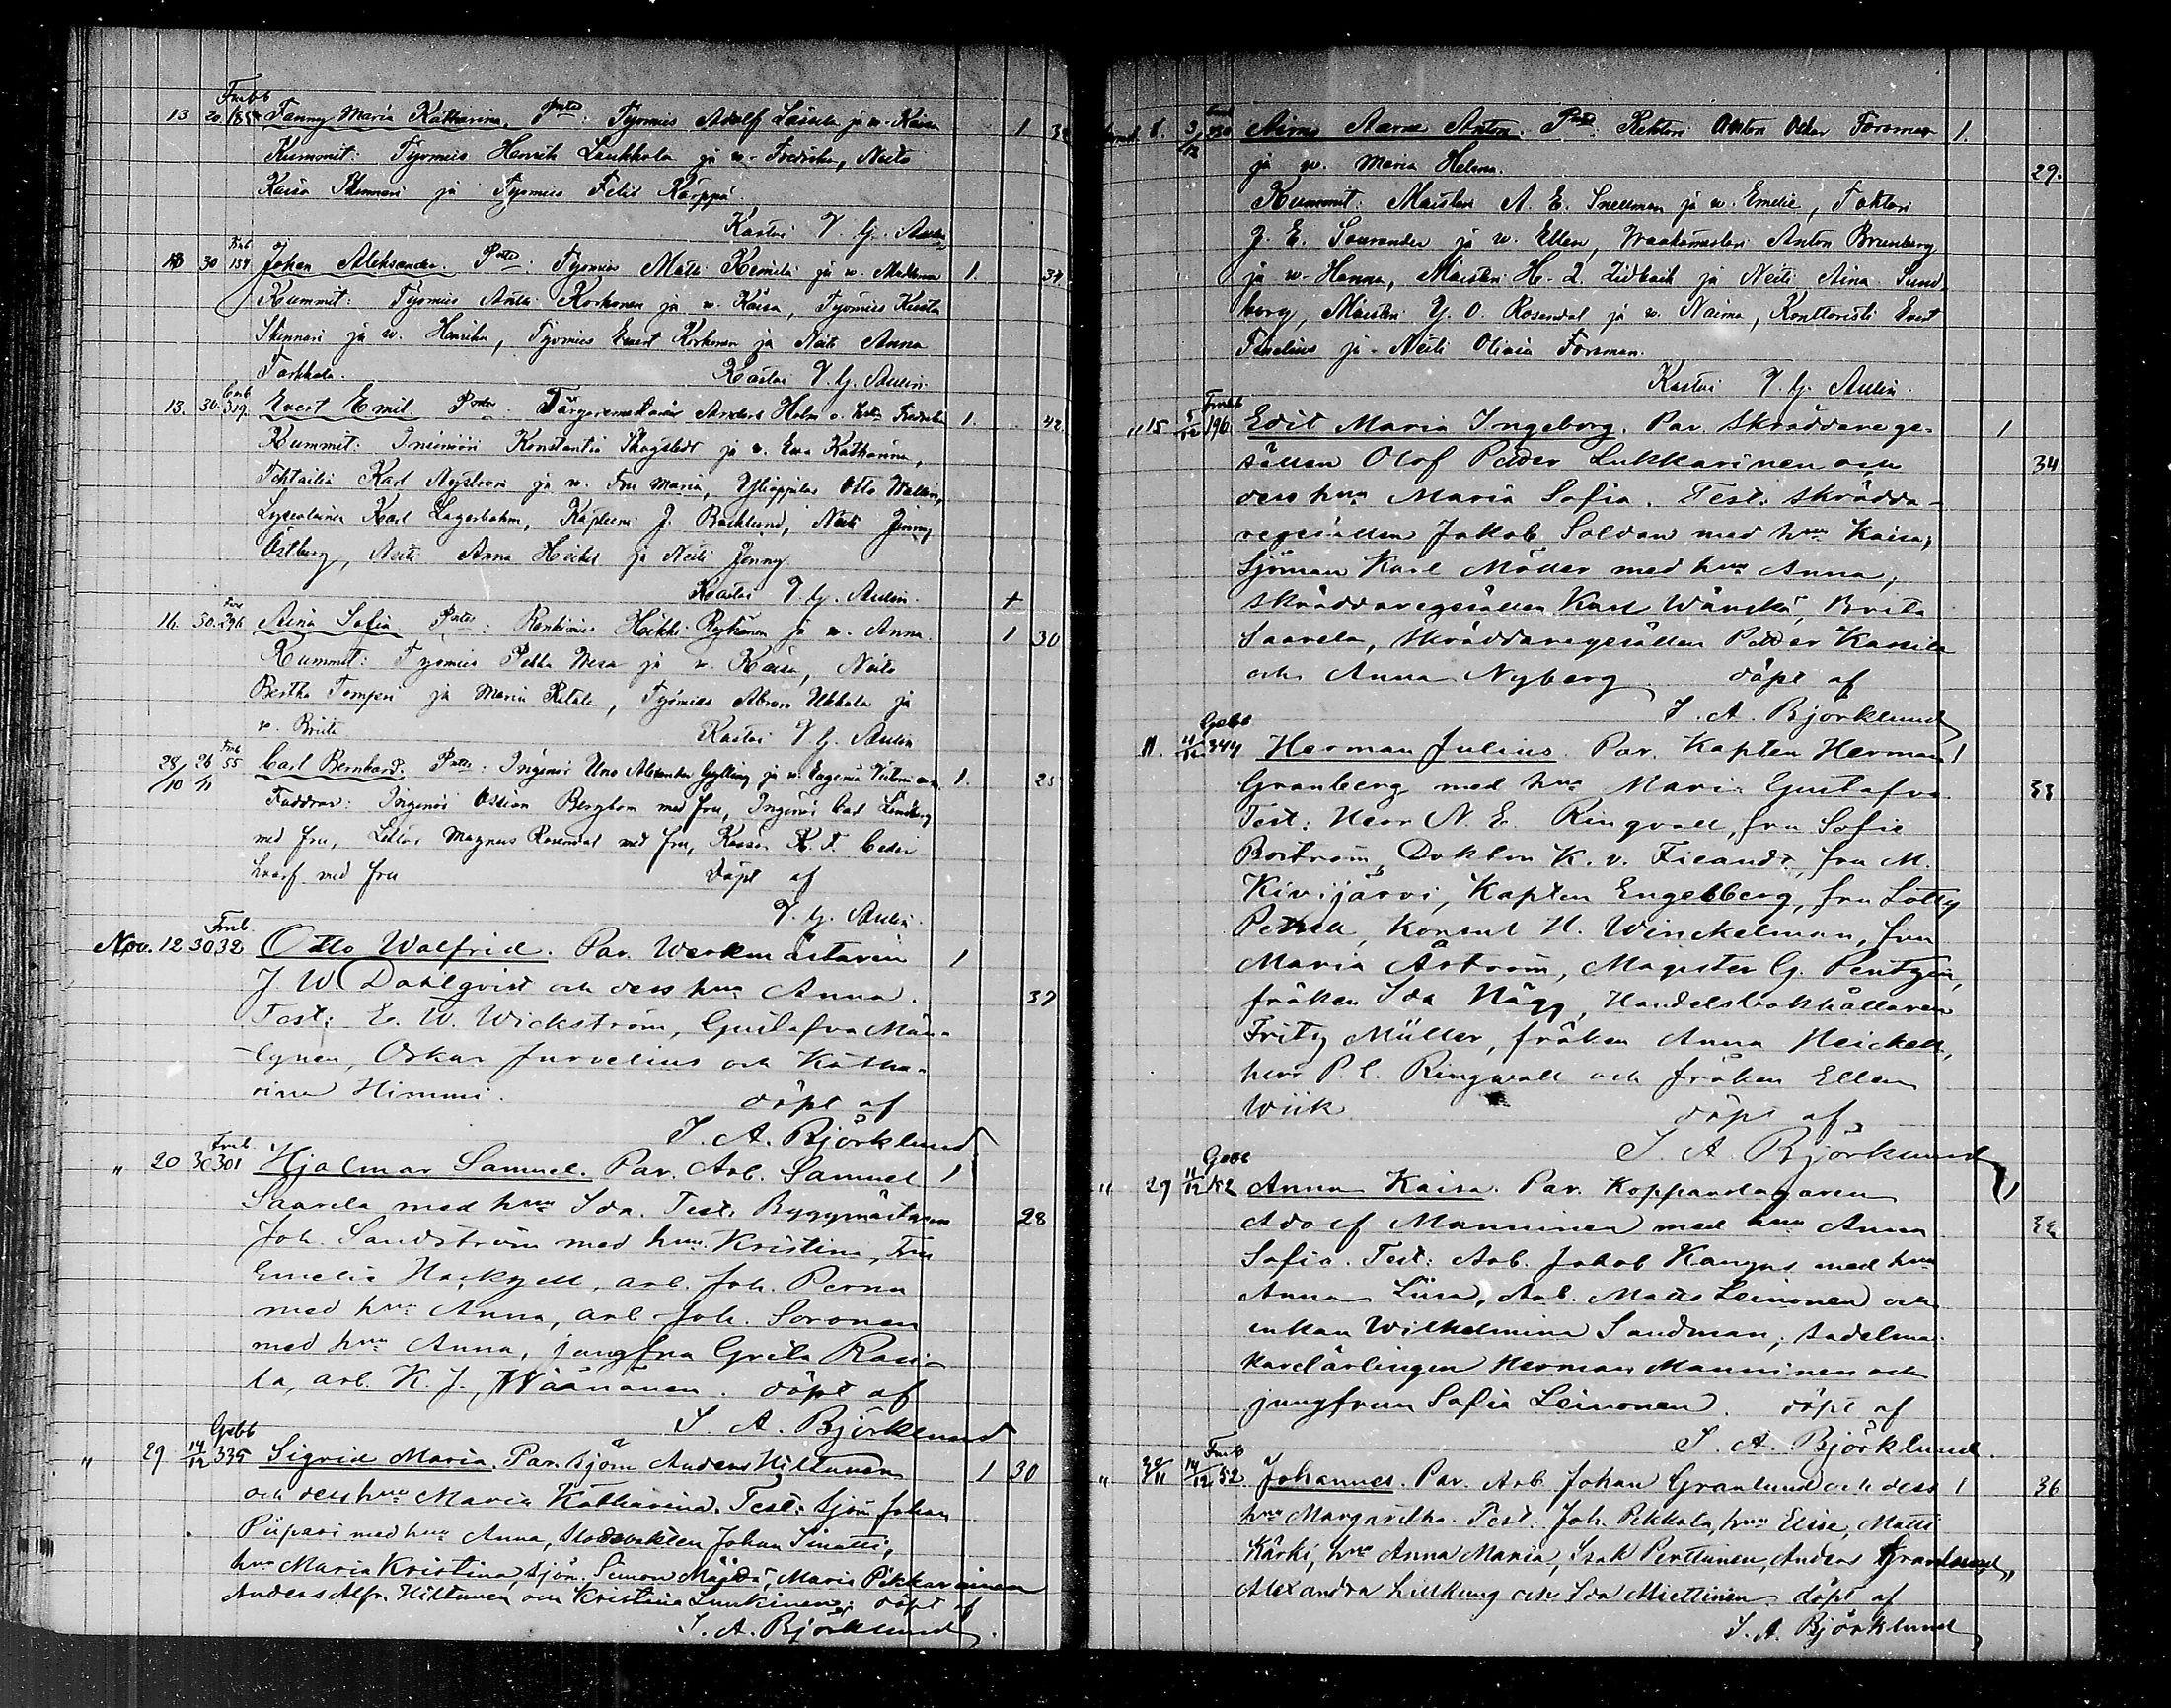 Fmbb
13 20 185 Fanny Maria Katharina. Päiv: Työmies Adolf ja w. Kaisa 1 32
Kummit: Työmies Henrik Laukkola ja w. Fredrika, Neito
Kaisa Skinnari ja Työmies Felix Karppa.
Kastoi V. G. Aulin
Fmb
13 30 134 Johan Aleksander. Työmies Matti Kemilä ja w. 1. 37
Kummit: Työmies Antti Korhonen ja w. Kaisa, Työmies Kusta
Skinnari ja w. Henrika, Työmies Evert Korhonen ja Neito Anna
Tarkkala. Kastoi V. G. Aulin.
13. 30. 319. Evert Emil. Anders Holm o. hustru Fredrika 1. 42
Kummit: Insinööri Konstantin Skogstedt ja w. Ewa Katharina,
Tehtailia Karl Nyström ja w. Fru Maria, Ylioppilas Otto Wallin,
Lysealainen Karl Lagerbohm, Kapteeni J. Backlund, Neiti Jenny
Östberg, Neiti Anna Heikel ja Neiti Jenny
Kastoi V. G. Aulin. +
16. 30. 296 Aina Sofia Renkimies Heikki ja w. Anna 1 30
Kummit: Työmies Pekka Wesa ja w. Kaisa, Neito
Bertha Tomperi ja Maria Ritola, Työmies Abram Ukkola ja
w. Briita Kastoi V. G. Aulin
Fmb
28/10 26/11 55 Carl Bernhard. Ingeniör Uno Alexander Gylling ja w. Eugenia 1. 25
Faddrar: Ingeniör Ossian Bergbom med fru, Ingeniör Carl
med fru, Lektor Magnus Rosendal med fru, Kassör K. F. Ceder
med fru Döpt af
V. G. Aulin.
Fmb.
Nov. 12 30 32 Otto Walfrid. Par. Werkmästaren 1
J. W. Dahlqvist och dess hu Anna. 37
Test: E. W. Wickström, Gustafva Män-
Oskar Jurvelius och Katha-
rina Himmi. döpt af
I. A. Björklund
Fmb.
" 20 30 301 Hjalmar Samuel. Par. Arb. Samuel 1
Saarela med hu Ida. Test: Byggmästaren 28
Joh. Sandström med hu Kristina, Fru
Emelia arb. Joh. Perna
med hu Anna, arb. Joh. Soronen
med hu Anna, jungfru Greta Rasi-
la, arb. K. J. Wäänänen. döpt af
I. A. Björklund
Gebb
" 29 14/12 335 Sigrid Maria. Par. sjöm Anders Hiltunen 1 30
och dess hu Maria Katharina. Test: sjöm Johan
Piipari med hu Anna, Johan Sinetti,
hu Maria Kristina, sjöm. Simon Määttä, Maria Pikkarainen
Anders Alfr. Hiltunen och Kristina Luukinen. döpt af
I. A. Björklund
8. 3/12 Aimo Aarne Anton. Rehtori Anton Oskar Forsman 1.
ja w. Maria Helena. 29.
Kummit: Maisteri A. E. Snellman ja w. Emelie, Faktori
J. E. Sourander ja w. Ellen, Anton Brunberg
ja w. Hanna, Maisteri H. L. Lidbäck ja Neiti Aina Sund-
berg, Maisteri Y. O. Rosendal ja w. Naima, Konttoristi Evert
Fraelius ja Neiti Olivia Forsman.
Kastoi V. G. Aulin.
Fmbb
" 15 5/12 196 Edit Maria Ingeborg. Par. Skräddarege- 1
sällen Olof Peder Lukkarinen och 34
dess hu Maria Sofia. Test: skrädda-
regesällen Jakob Soldan med hu Kaisa,
Sjöman Karl Möller med hu Anna,
Skräddaregesällen Karl Wänskä, Brita
Saarela, Skräddaregesällen Peder Kassila
och Anna Nyberg döpt af
I. A. Björklund
Gebb
11. 11/12 344 Herman Julius. Par. Kapten Herman 1
Granberg med hu Maria Gustafva 33
Test: Herr N. E. Ringvall, fru Sofie
Boström, Doktor K. v. Fieandt, fru M.
Kivijärvi, Kapten Engelberg, fru Lotty
Konsul H. Winckelman, fru
Maria Åström, Magister G. Pentzin,
fröken Ida Hägg, Handelsbokhållaren
Fritz Müller, fröken Anna Heickell,
herr P. C. Ringwall och fröken Ellen
Wiik döpt af
I. A. Björklund
Gebb
" 29 11/12 Anna Kaisa. Par. Koppardagaren 1
Adolf Manninen med hu Anna 32
Sofia. Test: Arb. Jakob Kangas med hu
Anna Liisa, Arb. Matts Leinonen och
enkan Wilhelmina Sandman, sadelma-
karelärlingen Herman Manninen och
jungfrun Sofia Leinonen. döpt af
I. A. Björklund.
Fmb
" 30/11 14/12 52 Johannes. Par. Arb. Johan Granlund och dess 1 36
hu Margaretha. Test. Joh. Pekkala, hu Elise, Matti
Kärki, hu Anna Maria, Isak Perttunen, Anders Granlund,
Alexandra Lillkung och Ida Miettinen döpt af
I. A. Björklund